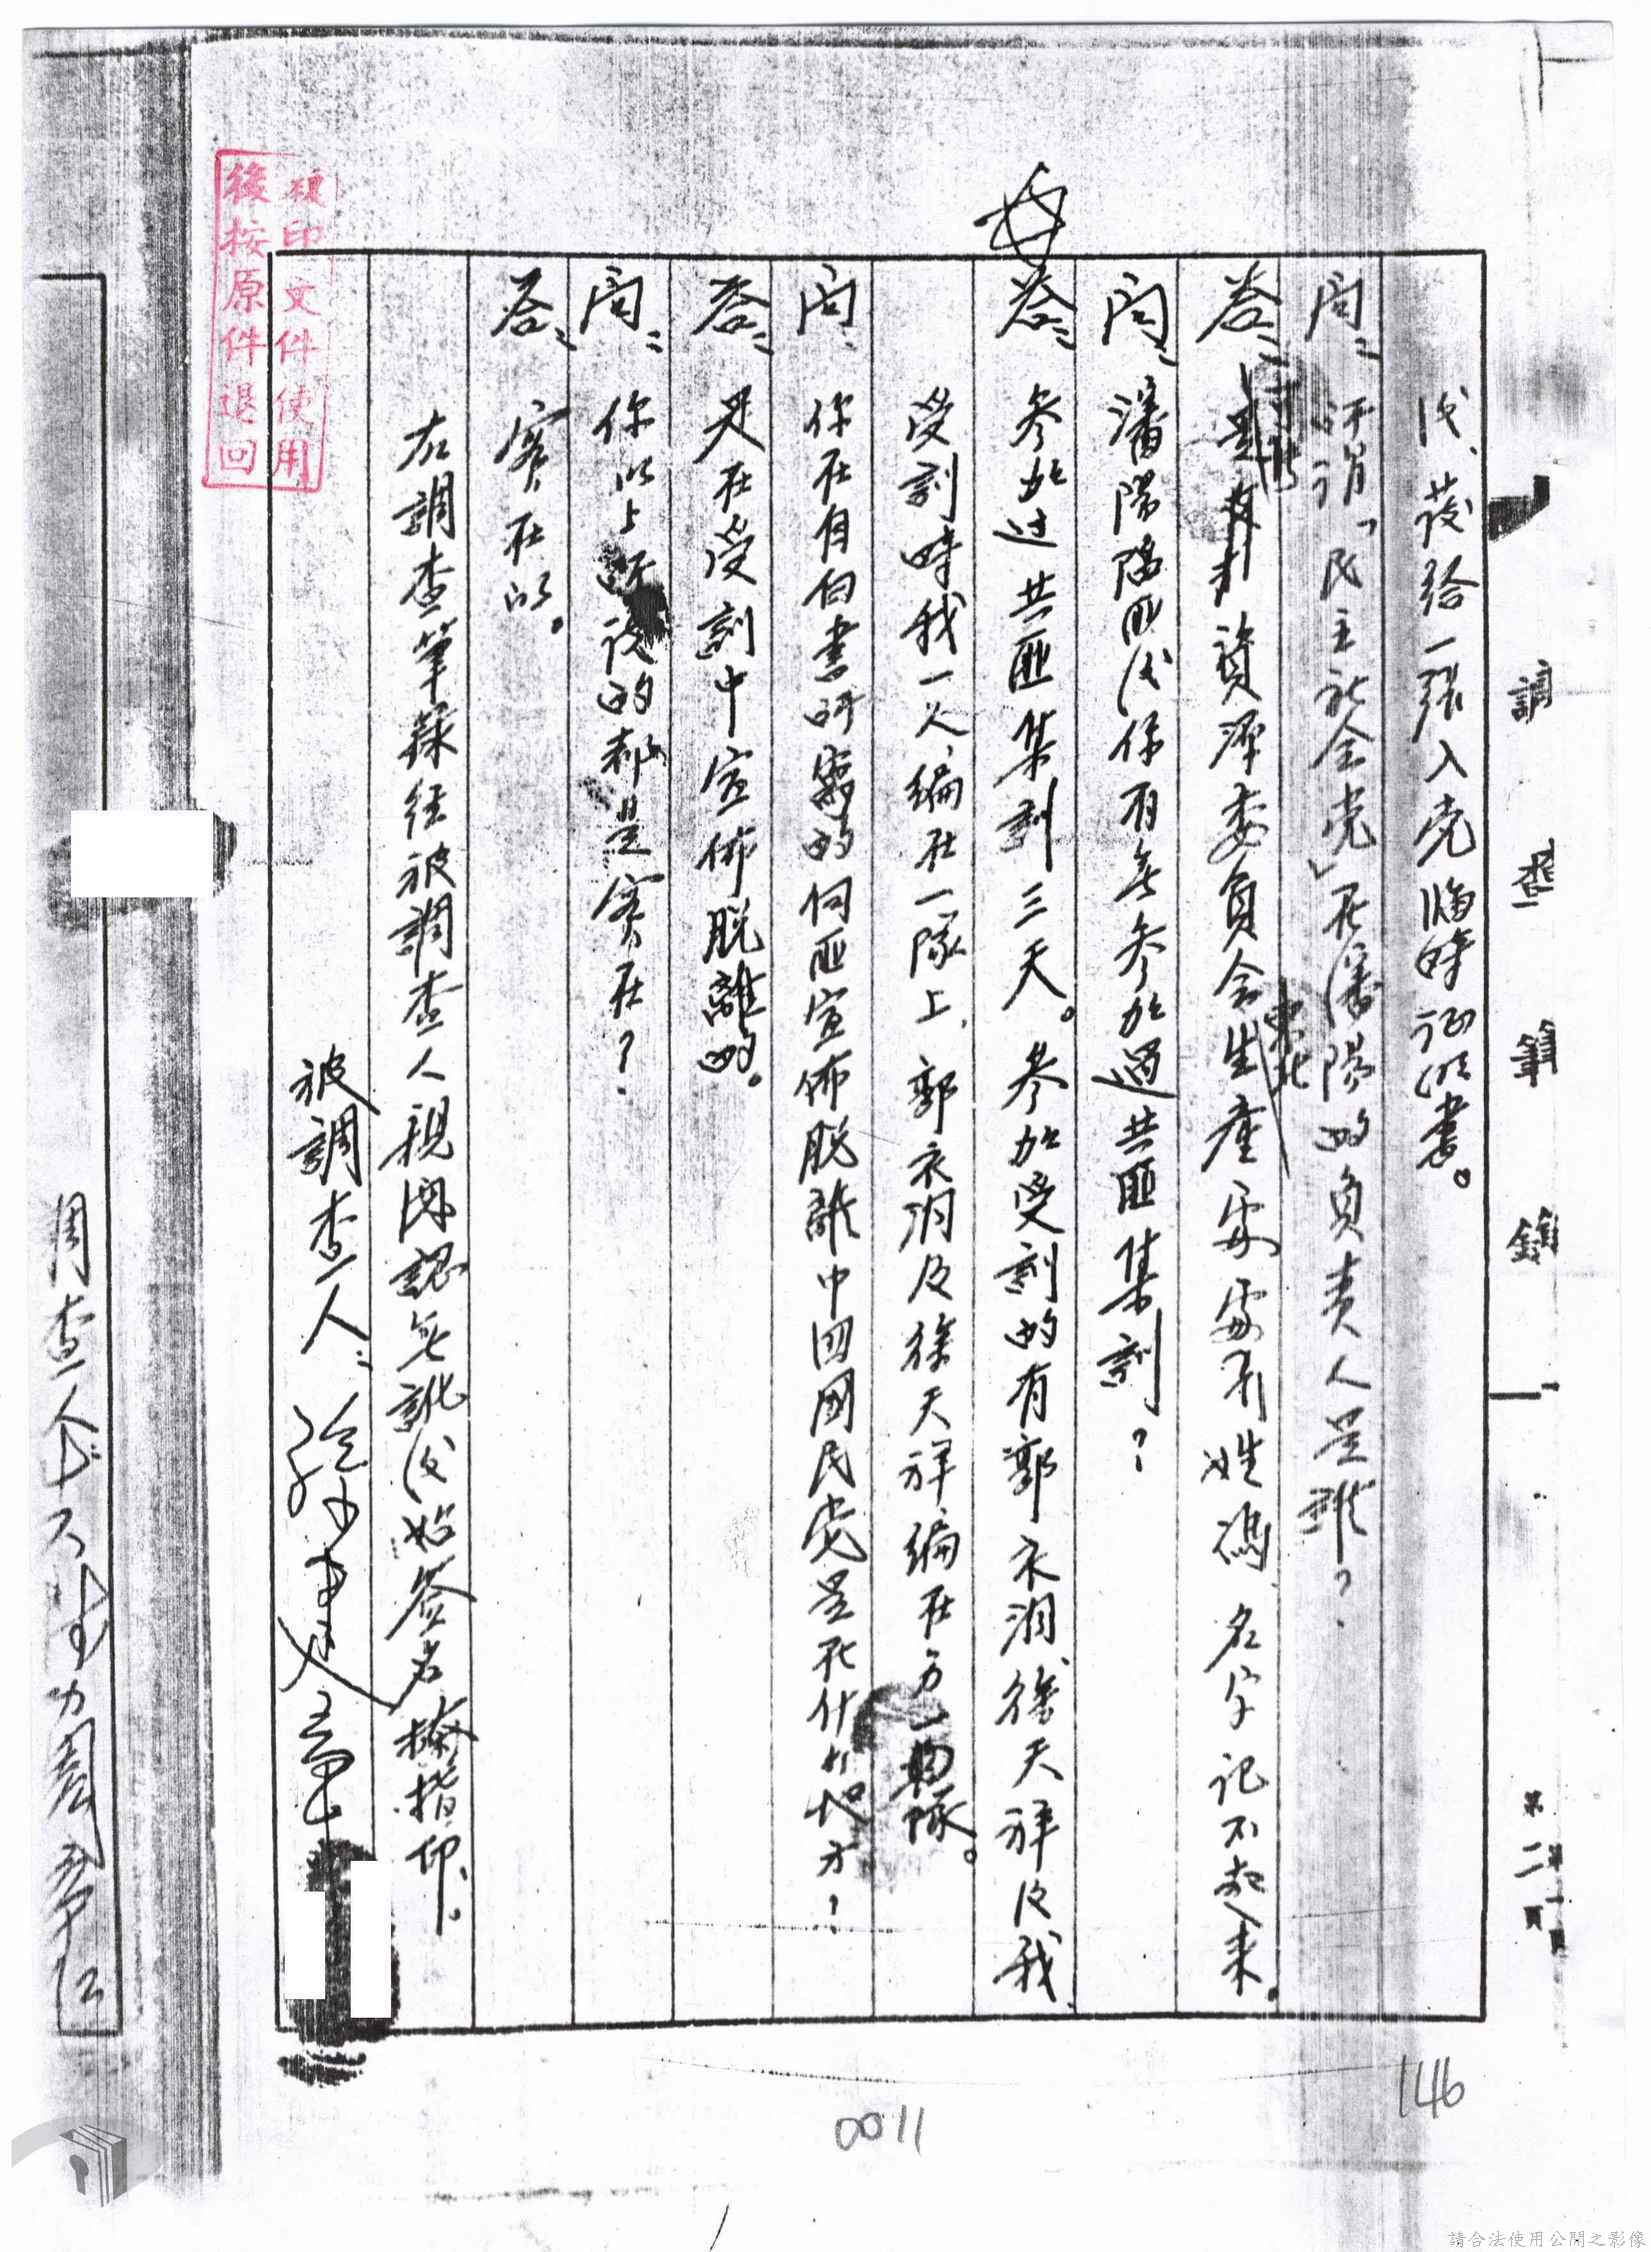 調查筆錄
第二頁
後、發給一張入党臨時証明書。
問：所謂「民主社会党」在瀋陽的負責人是誰？
答：是資源委員会東北生產處處長姓馮、名字記不起來。
問：瀋陽陷匪後你有無参加過共匪集訓？
答：参加过共匪集訓三天。参加受訓的有郭衣洞、徐天祥及我
受訓時我一人編在一隊上、郭衣洞及徐天祥編在另一隊。
問：你在自白書所寫的向匪宣佈脫離中国國民党是在什么地方？
答：是在受訓中宣佈脫離的。
問：你以上所說的都是實在？
答：實在的。
右調查筆錄経被調查人親閱認無訛後始簽名捺指印。
被調查人：孫建章
複印文件使用
後按原件退回
調查人
146
0011
請合法使用公開之影像